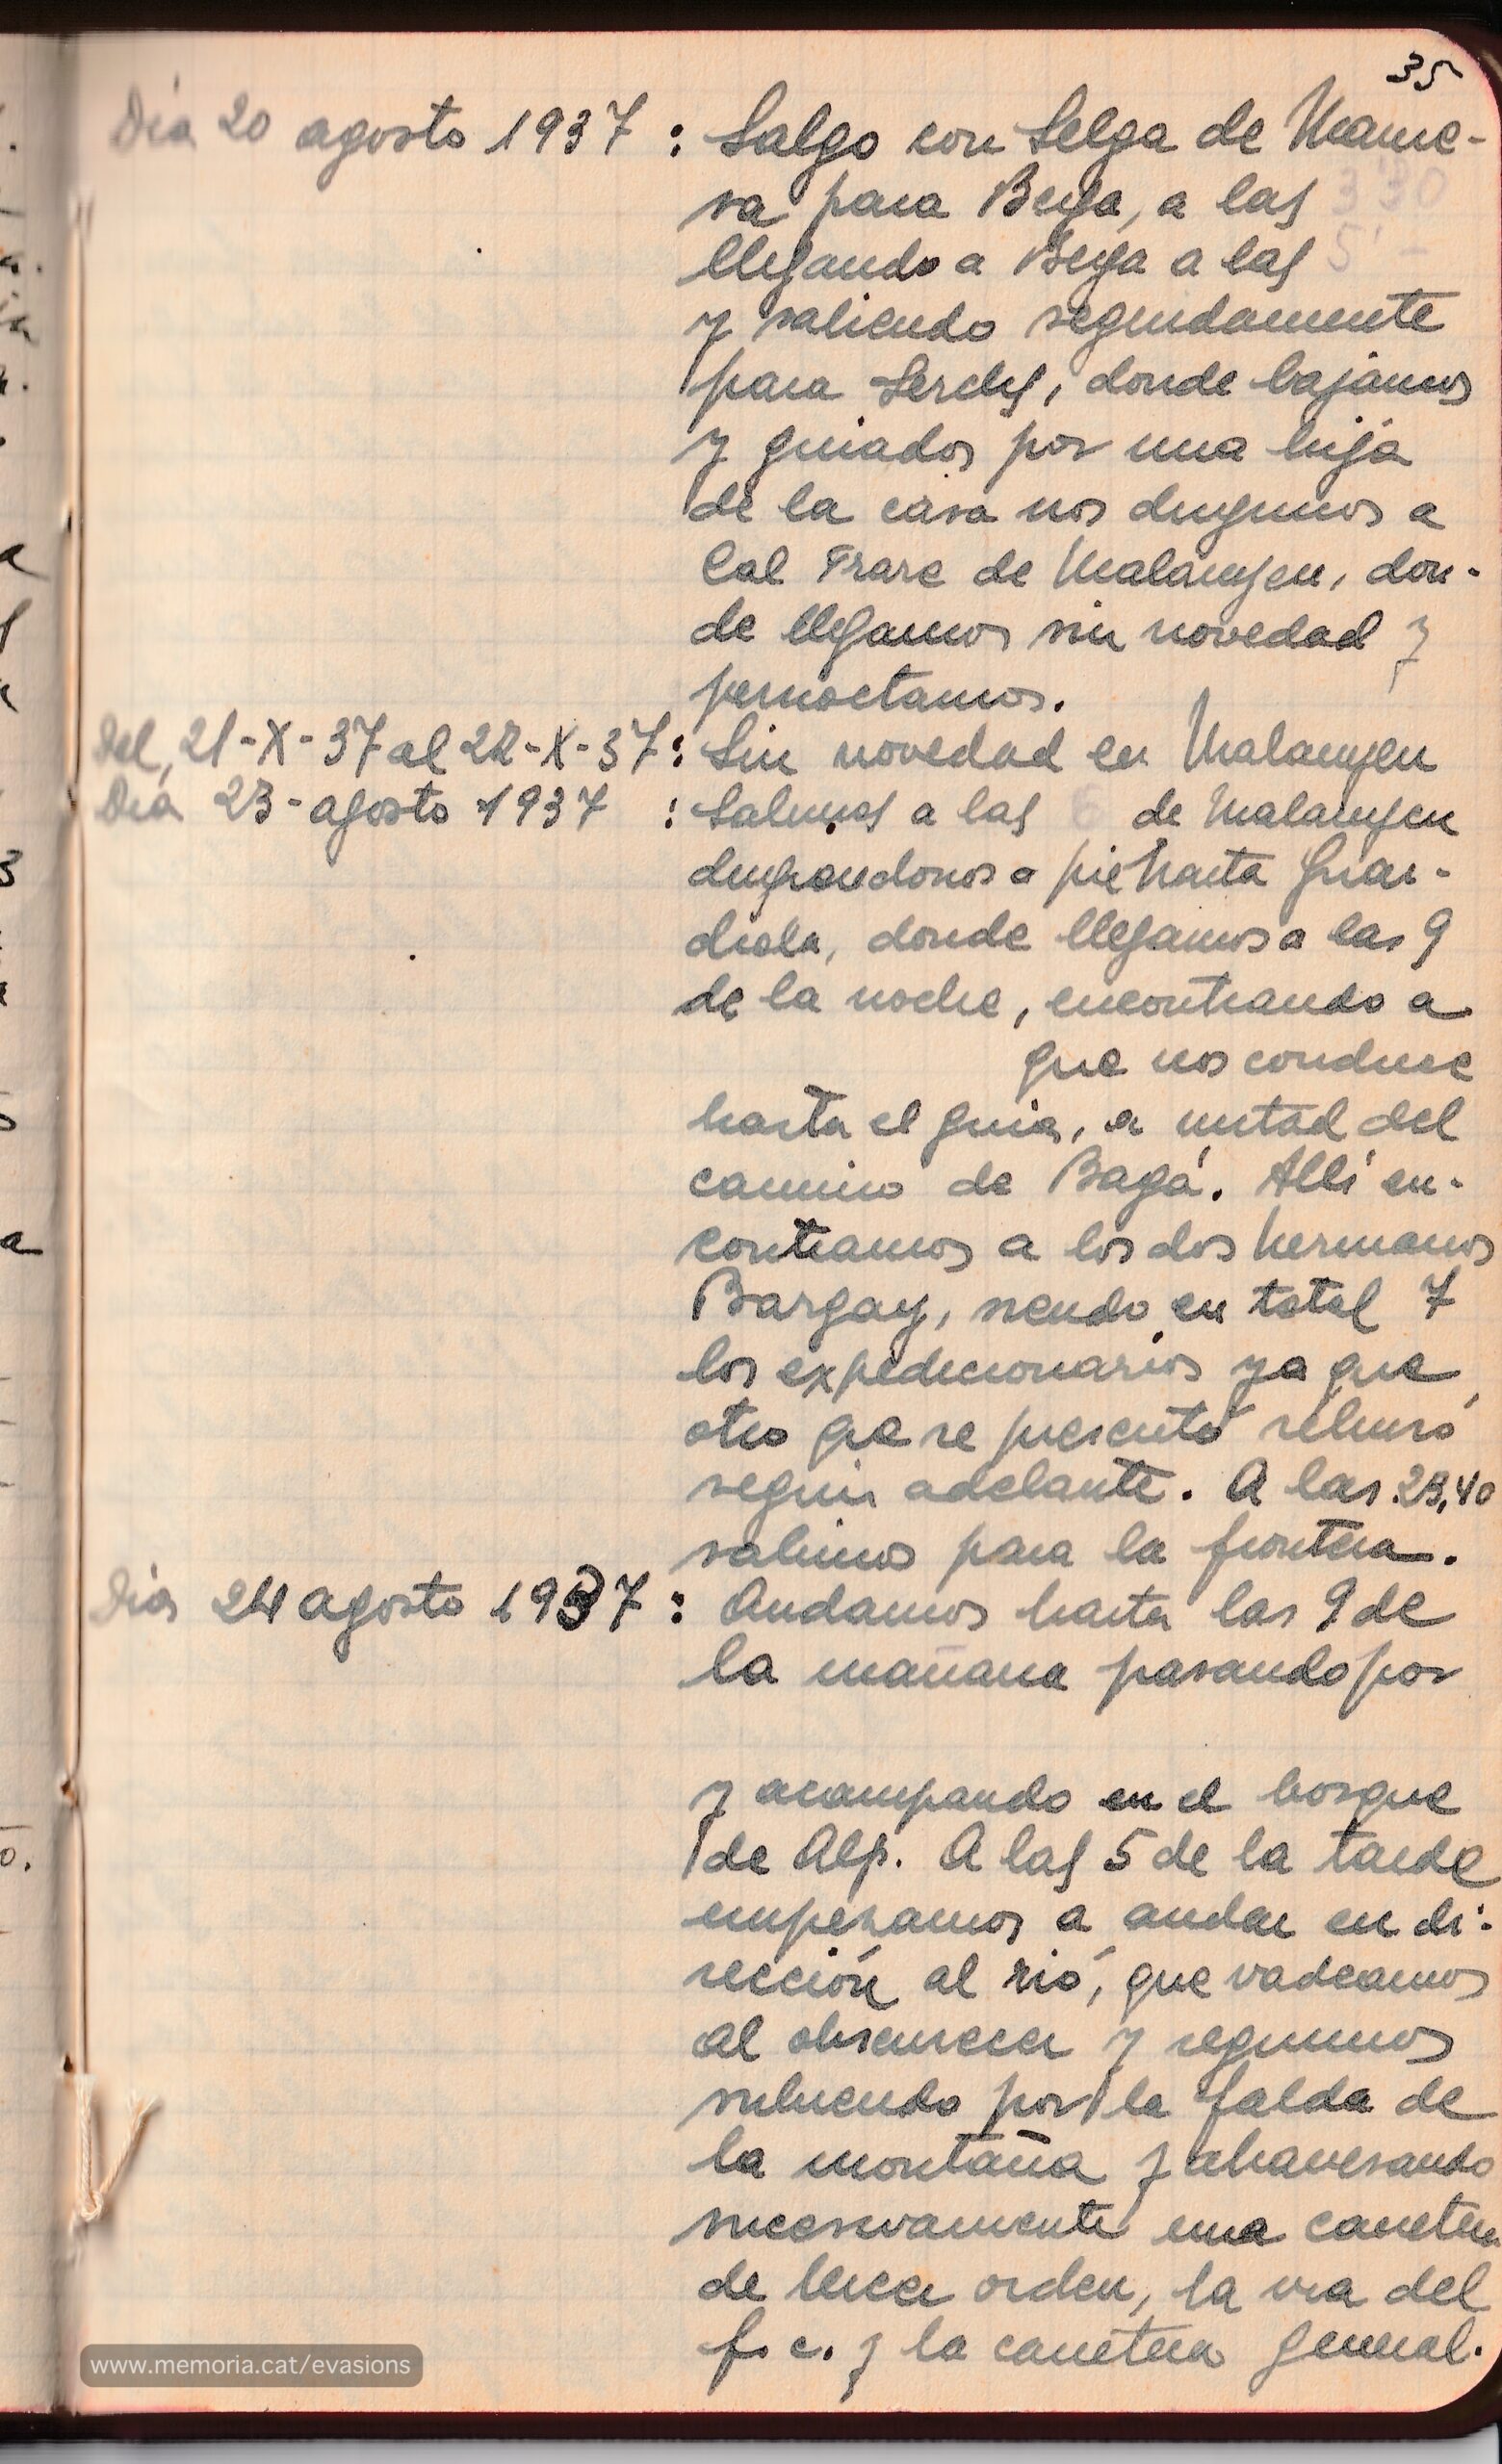 35
Dia 20 agosto 1937 : Salgo con Selga de Manre-
sa para Berga, a las 3'30
llegando a Berga a las 5' -
y saliendo seguidamente
para Serchs, donde bajamos
y guiados por una hija
de la casa nos dirigimos a
Cal Frare de Malanyeu, don-
de llegamos sin novedad y
pernoctamos.
Del, 21-X-37 al 22-X-37 : Sin novedad en Malanyeu
Dia 23-agosto 1937 : Salimos a las 6 de Malanyeu
dirigiendonos a pie hasta Guar-
diola, donde llegamos a las 9
de la noche, encontrando a
que nos conduce
hasta el guia, a mitad del
camino de Bagá. Allí en-
contramos a los dos hermanos
Bargay, siendo en total 7
los expedicionarios ya que
otro que se presentó rehusó
seguir adelante. A las 23,40
salimos para la frontera.
Dia 24 agosto 1937 : Andamos hasta las 9 de
la mañana pasando por
y acampando en el bosque
de Alp. A las 5 de la tarde
empezamos a andar en di-
rección al rió, que vadeamos
al obscurecer y seguimos
subiendo por la falda de
la montaña y atravesando
sucesivamente una carretera
de tercer orden, la via del
f. c. y la carretera general.
www.memoria.cat/evasions